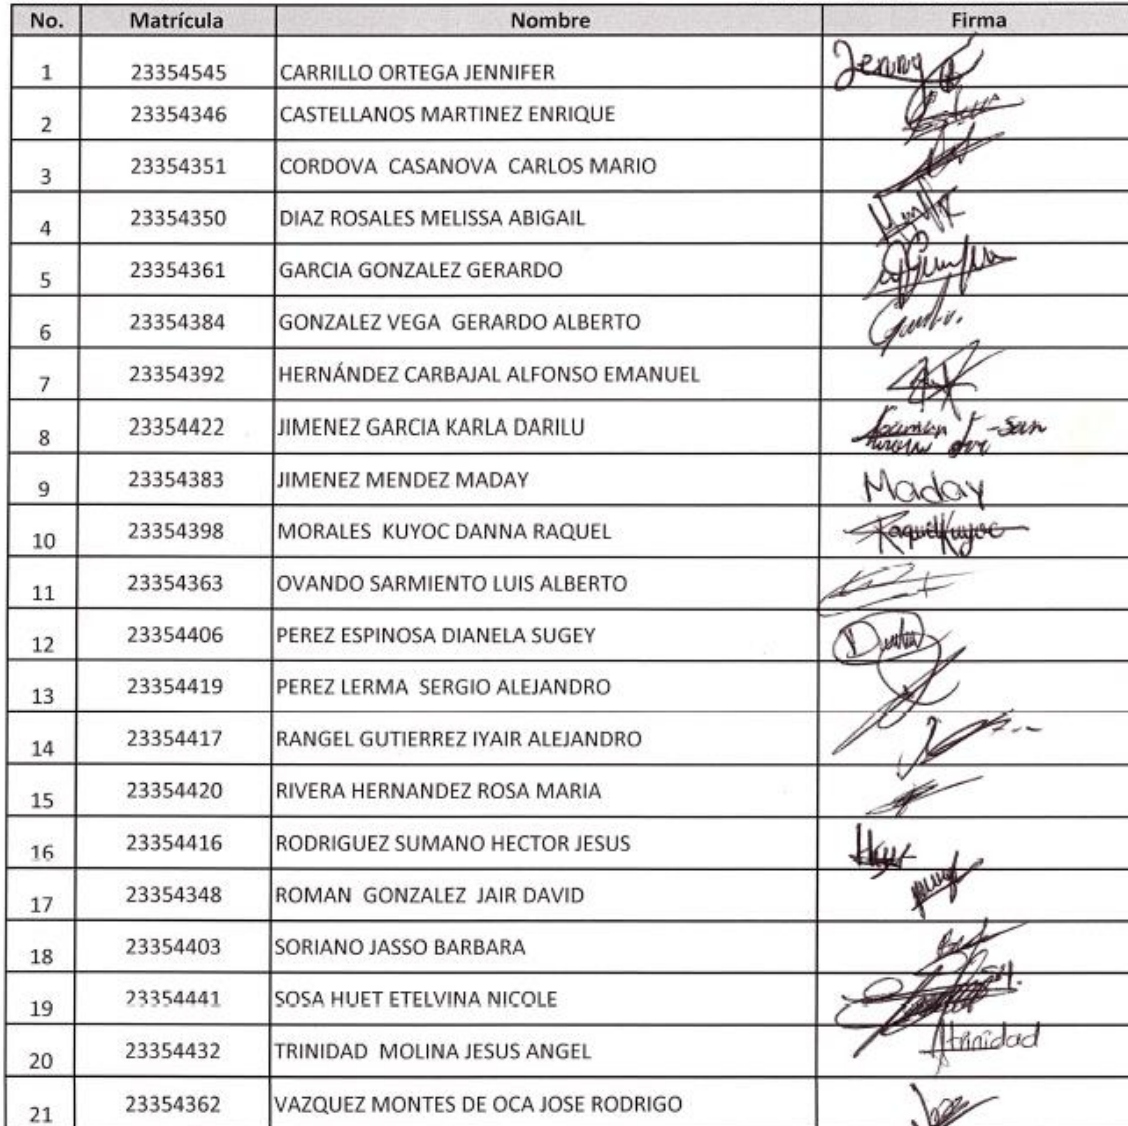 No. Matrícula Nombre Firma
1 23354545 CARRILLO ORTEGA JENNIFER Jenny
2 23354346 CASTELLANOS MARTINEZ ENRIQUE
3 23354351 CORDOVA CASANOVA CARLOS MARIO
4 23354350 DIAZ ROSALES MELISSA ABIGAIL
5 23354361 GARCIA GONZALEZ GERARDO
6 23354384 GONZALEZ VEGA GERARDO ALBERTO
7 23354392 HERNÁNDEZ CARBAJAL ALFONSO EMANUEL
8 23354422 JIMENEZ GARCIA KARLA DARILU
9 23354383 JIMENEZ MENDEZ MADAY Maday
10 23354398 MORALES KUYOC DANNA RAQUEL RaquelKuyoc
11 23354363 OVANDO SARMIENTO LUIS ALBERTO
12 23354406 PEREZ ESPINOSA DIANELA SUGEY
13 23354419 PEREZ LERMA SERGIO ALEJANDRO
14 23354417 RANGEL GUTIERREZ IYAIR ALEJANDRO
15 23354420 RIVERA HERNANDEZ ROSA MARIA
16 23354416 RODRIGUEZ SUMANO HECTOR JESUS
17 23354348 ROMAN GONZALEZ JAIR DAVID
18 23354403 SORIANO JASSO BARBARA
19 23354441 SOSA HUET ETELVINA NICOLE
20 23354432 TRINIDAD MOLINA JESUS ANGEL Atrinidad
21 23354362 VAZQUEZ MONTES DE OCA JOSE RODRIGO